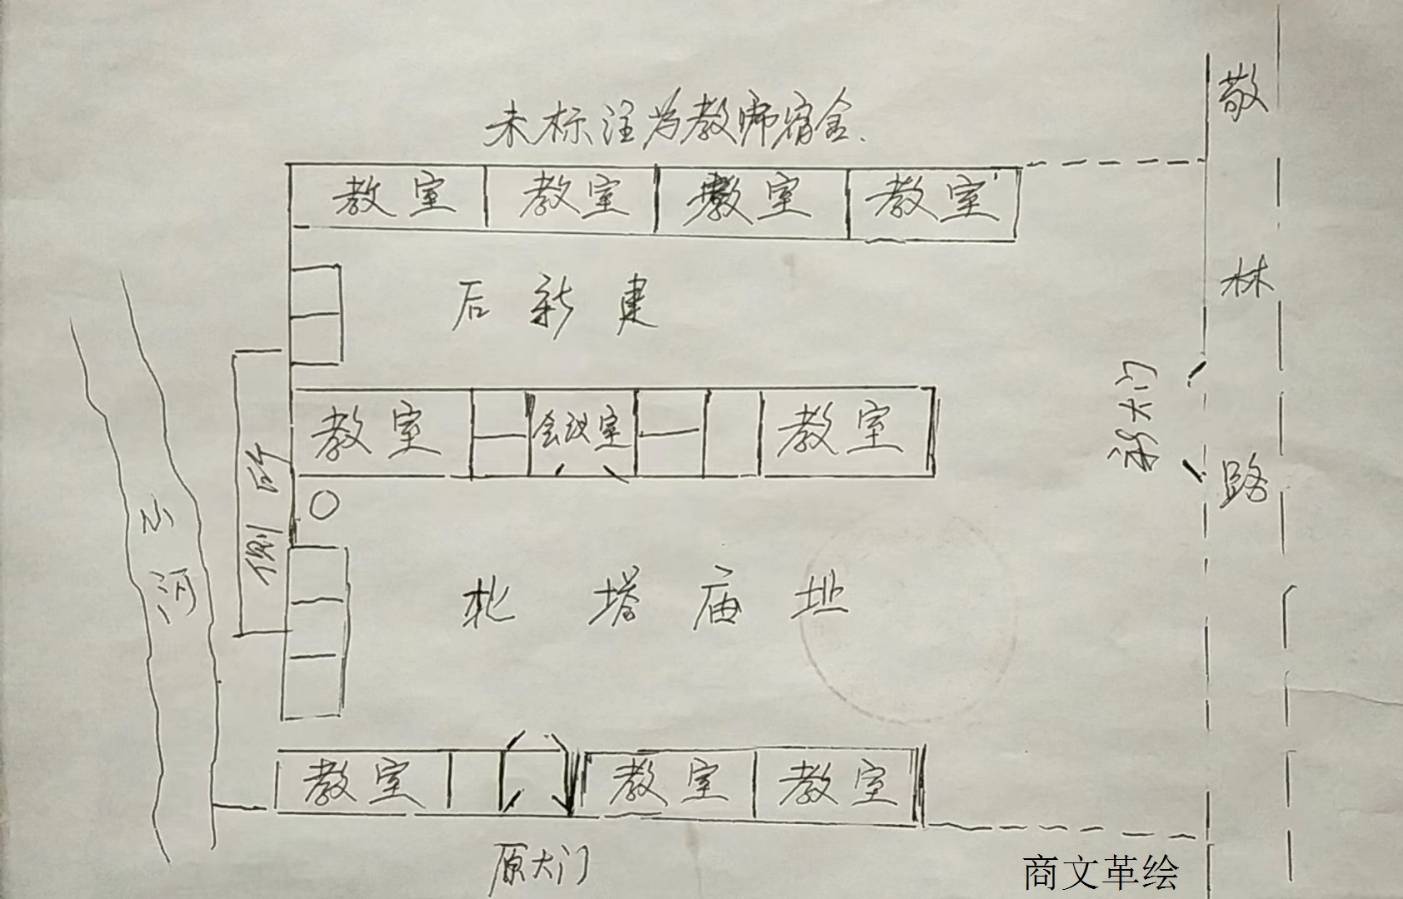 未标注为教师宿舍.
教室 教室 教室 教室
后新建
教室 会议室 教室
厕所
小河
北塔庙址
教室 教室 教室
原大门
新大门
敬林路
商文革绘